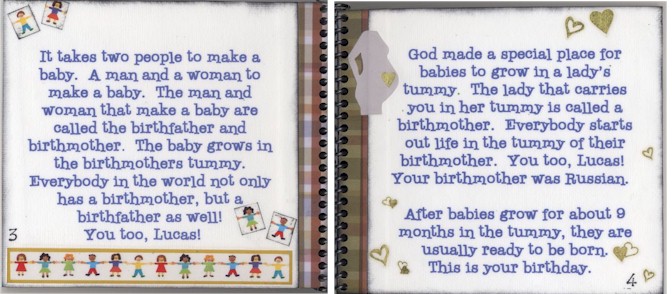 It takes two people to make a
baby. A man and a woman to
make a baby. The man and
woman that make a baby are
called the birthfather and
birthmother. The baby grows in
the birthmothers tummy.
Everybody in the world not only
has a birthmother, but a
birthfather as well!
You too, Lucas!
3
God made a special place for
babies to grow in a lady's
tummy. The lady that carries
you in her tummy is called a
birthmother. Everybody starts
out life in the tummy of their
birthmother. You too, Lucas!
Your birthmother was Russian.
After babies grow for about 9
months in the tummy, they are
usually ready to be born.
This is your birthday.
4